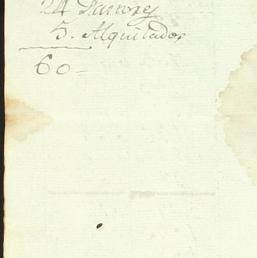 24
5. Alquilador
60 -